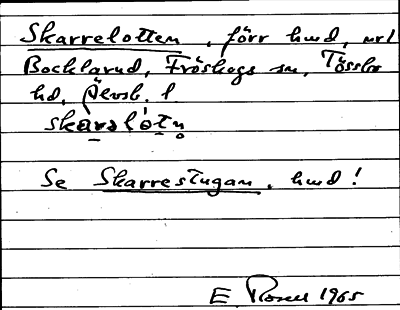 Skarrelotten, förr hmd, url
Bocklarud, Fröskogs sn, Tössbo
hd, Älvsb. l
skàralòtn̥
Se Skarrestugan, hmd!
E 1965